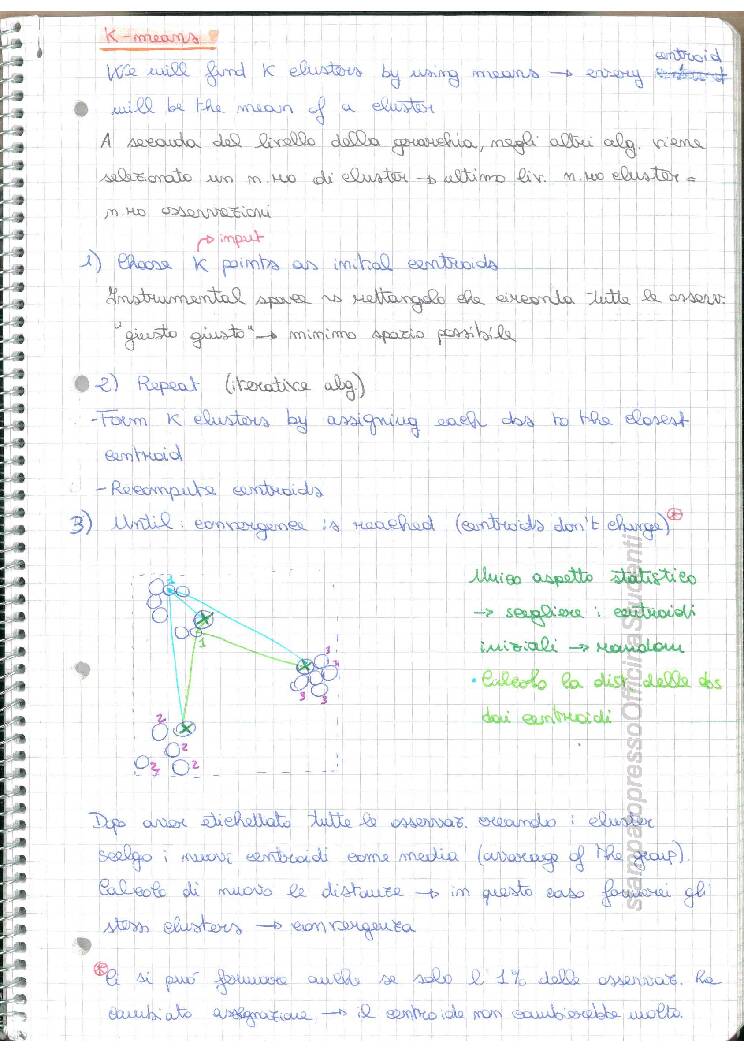 K-means
We will find K clusters by using means → every centroid
will be the mean of a cluster
A seconda del livello della gerarchia, negli altri alg. viene
selezionato un n.ro di cluster → ultimo liv. n.ro cluster =
n.ro osservazioni
→ input
1) Choose K points as initial centroids
Instrumental space is rettangolo che circonda tutte le osserv.
"giusto giusto" → minimo spazio possibile
2) Repeat (iterative alg.)
- Form K clusters by assigning each obs to the closest
centroid
- Recompute centroids
3) Until: convergence is reached (centroids don't change) *
Unico aspetto statistico
→ scegliere i centroidi
iniziali → random
• Calcolo la dist. delle obs
dai centroidi
1
1
1
1
3
3
2
2
2
2
Dopo aver etichettato tutte le osservaz. creando i cluster
scelgo i nuovi centroidi come media (avarage of the group).
Calcolo di nuovo le distanze → in questo caso formerei gli
stessi clusters → convergenza
* Ci si può fermare anche se solo l'1% delle osservaz. ha
cambiato assegnazione → il centroide non cambierebbe molto.
stampatopressoOfficinaStudenti